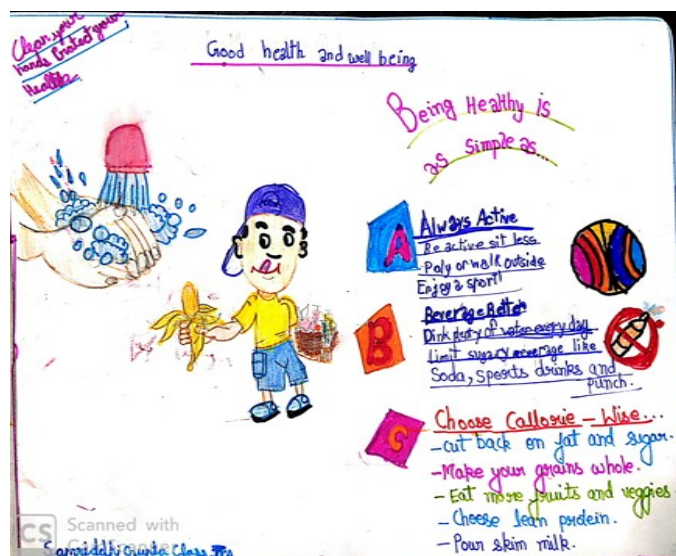 Clean your
hands Protect your
Health
Good health and well being
Being Healthy is
as simple as...
A
Always Active
Be active sit less
-Poly or walk outside
Enjoy a sport
B
Beverage Better
Dink plenty of water every day
Limit sugary like
Soda, Sports drinks and
punch.
C
Choose Callorie - Wise...
-cut back on fat and sugar.
-Make your grains whole.
-Eat more fruits and veggies
-Choose lean protein.
-Pour skim milk.
CS Scanned with
Samriddhi Gupta Class